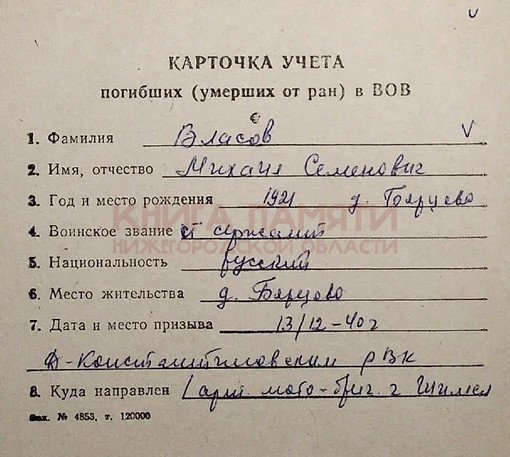 КАРТОЧКА УЧЕТА
погибших (умерших от ран) в ВОВ
1. Фамилия Власов V
2. Имя, отчество Михаил Семенович
3. Год и место рождения 1921 д.
КНИГА ПАМЯТИ
4. Воинское звание сержант
НИЖЕГОРОДСКОЙ ОБЛАСТИ
5. Национальность русский
6. Место жительства д. Барцово
7. Дата и место призыва 13/12-40г
Д-Константиновским РВК
8. Куда направлен мото-бриг. г
Зак. № 4853, т. 120000